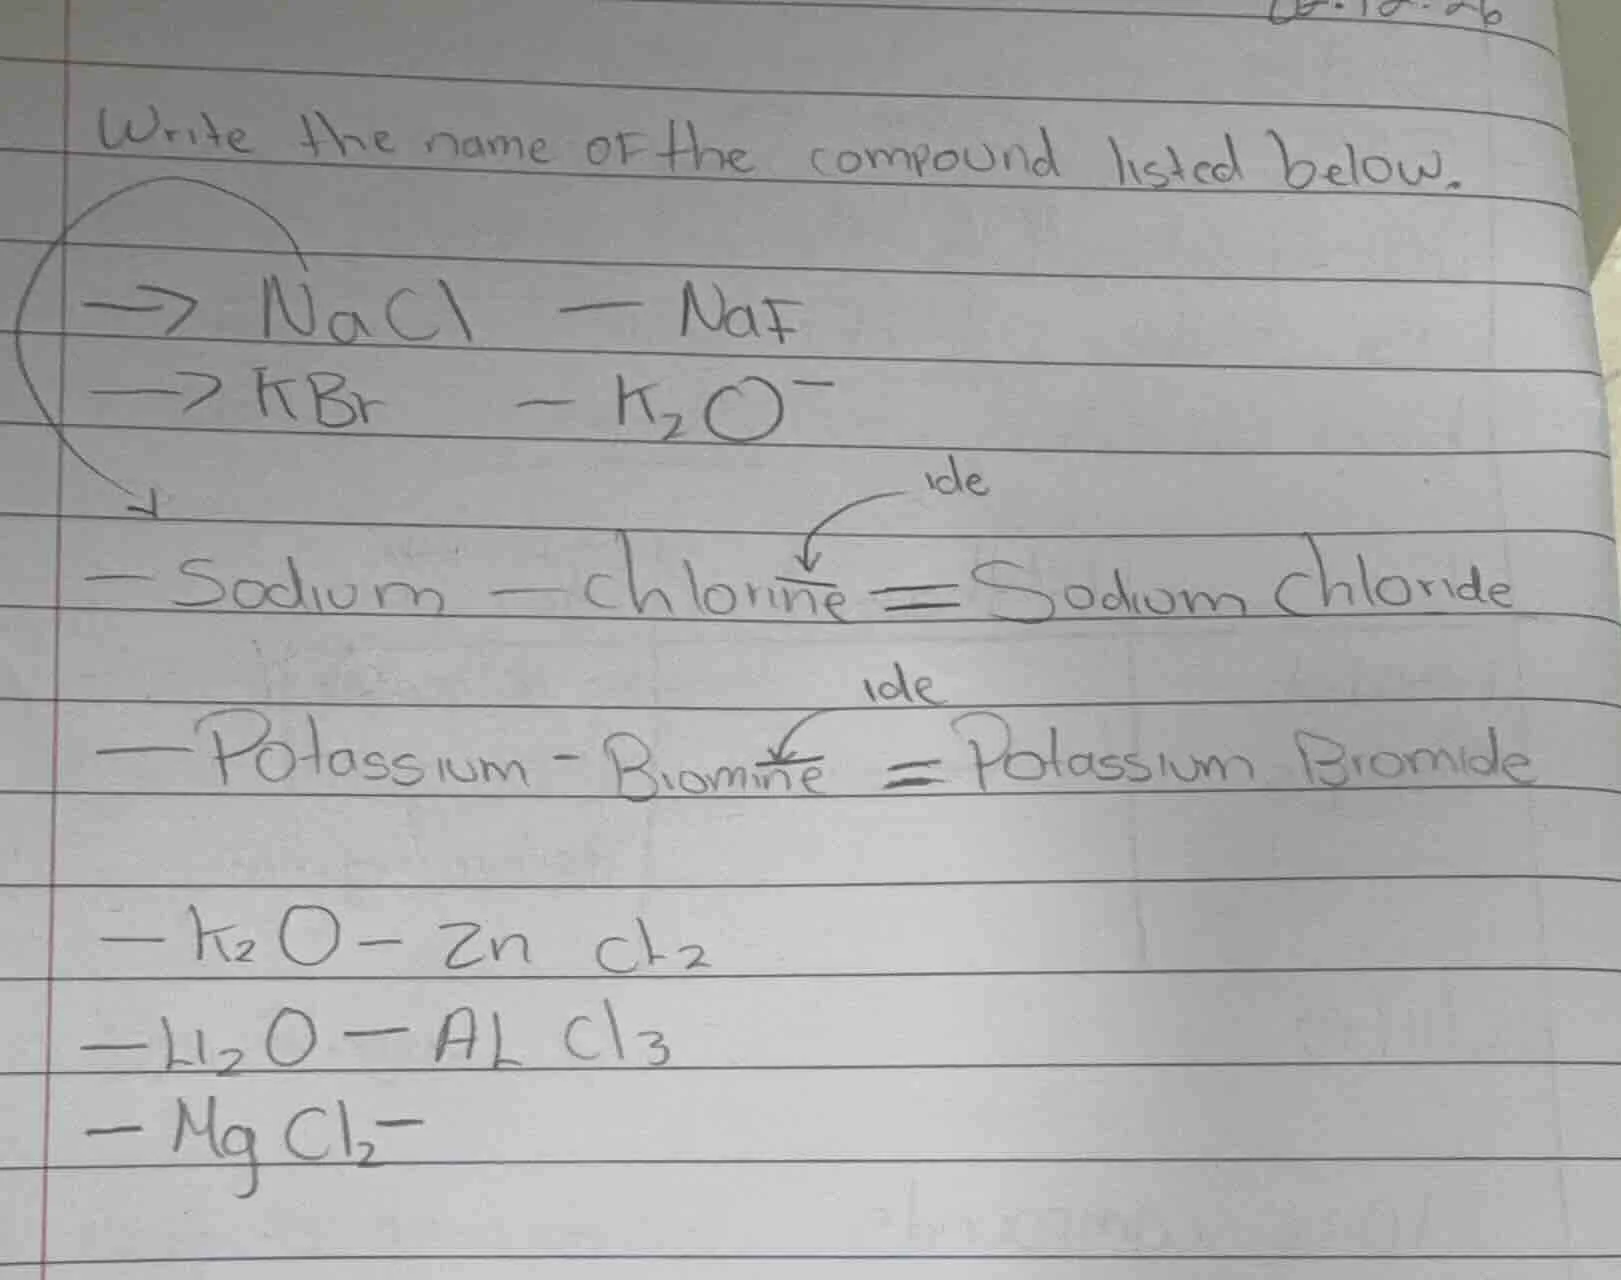 Write the name of the compound listed below.
→ NaCl — NaF
→ KBr - K₂O⁻
ide
— Sodium — chlorine = Sodium chloride
ide
— Potassium - Bromine = Potassium Bromide
— K₂O — Zn CL₂
— LI₂O — AL Cl₃
— Mg Cl₂ —